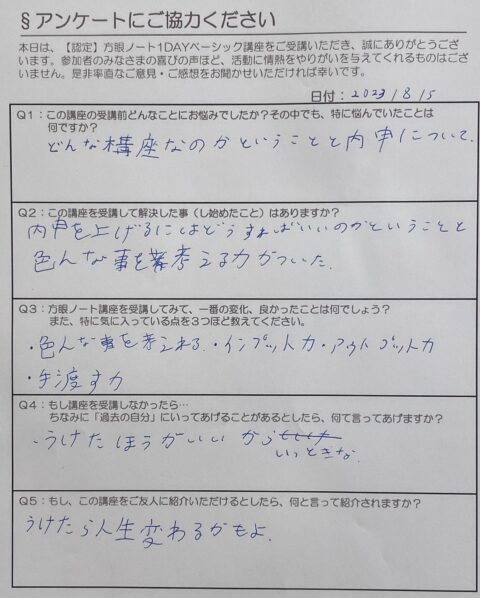 §アンケートにご協力ください
本日は、【認定】方眼ノート1DAYベーシック講座をご受講いただき、誠にありがとうござ
います。参加者のみなさまの喜びの声ほど、活動に情熱をやりがいを与えてくれるものはござ
いません。是非率直なご意見・ご感想をお聞かせいただければ幸いです。
日付：2023/8/5
Q1：この講座の受講前どんなことにお悩みでしたか？その中でも、特に悩んでいたことは
何ですか？
どんな構座なのかということと内申について.
Q2：この講座を受講して解決した事（し始めたこと）はありますか？
内申を上げるにはどうすればいいのかということと
色んな事を考える力がついた.
Q3：方眼ノート講座を受講してみて、一番の変化、良かったことは何でしょう？
また、特に気に入っている点を３つほど教えてください。
・色んな事を考えれる.・インプット力・アウトプット力
・手渡す力
Q4：もし講座を受講しなかったら…
ちなみに「過去の自分」にいってあげることがあるとしたら、何て言ってあげますか？
・うけたほうがいいから
いっときな
Q5：もし、この講座をご友人に紹介いただけるとしたら、何と言って紹介されますか？
うけたら人生変わるかもよ.